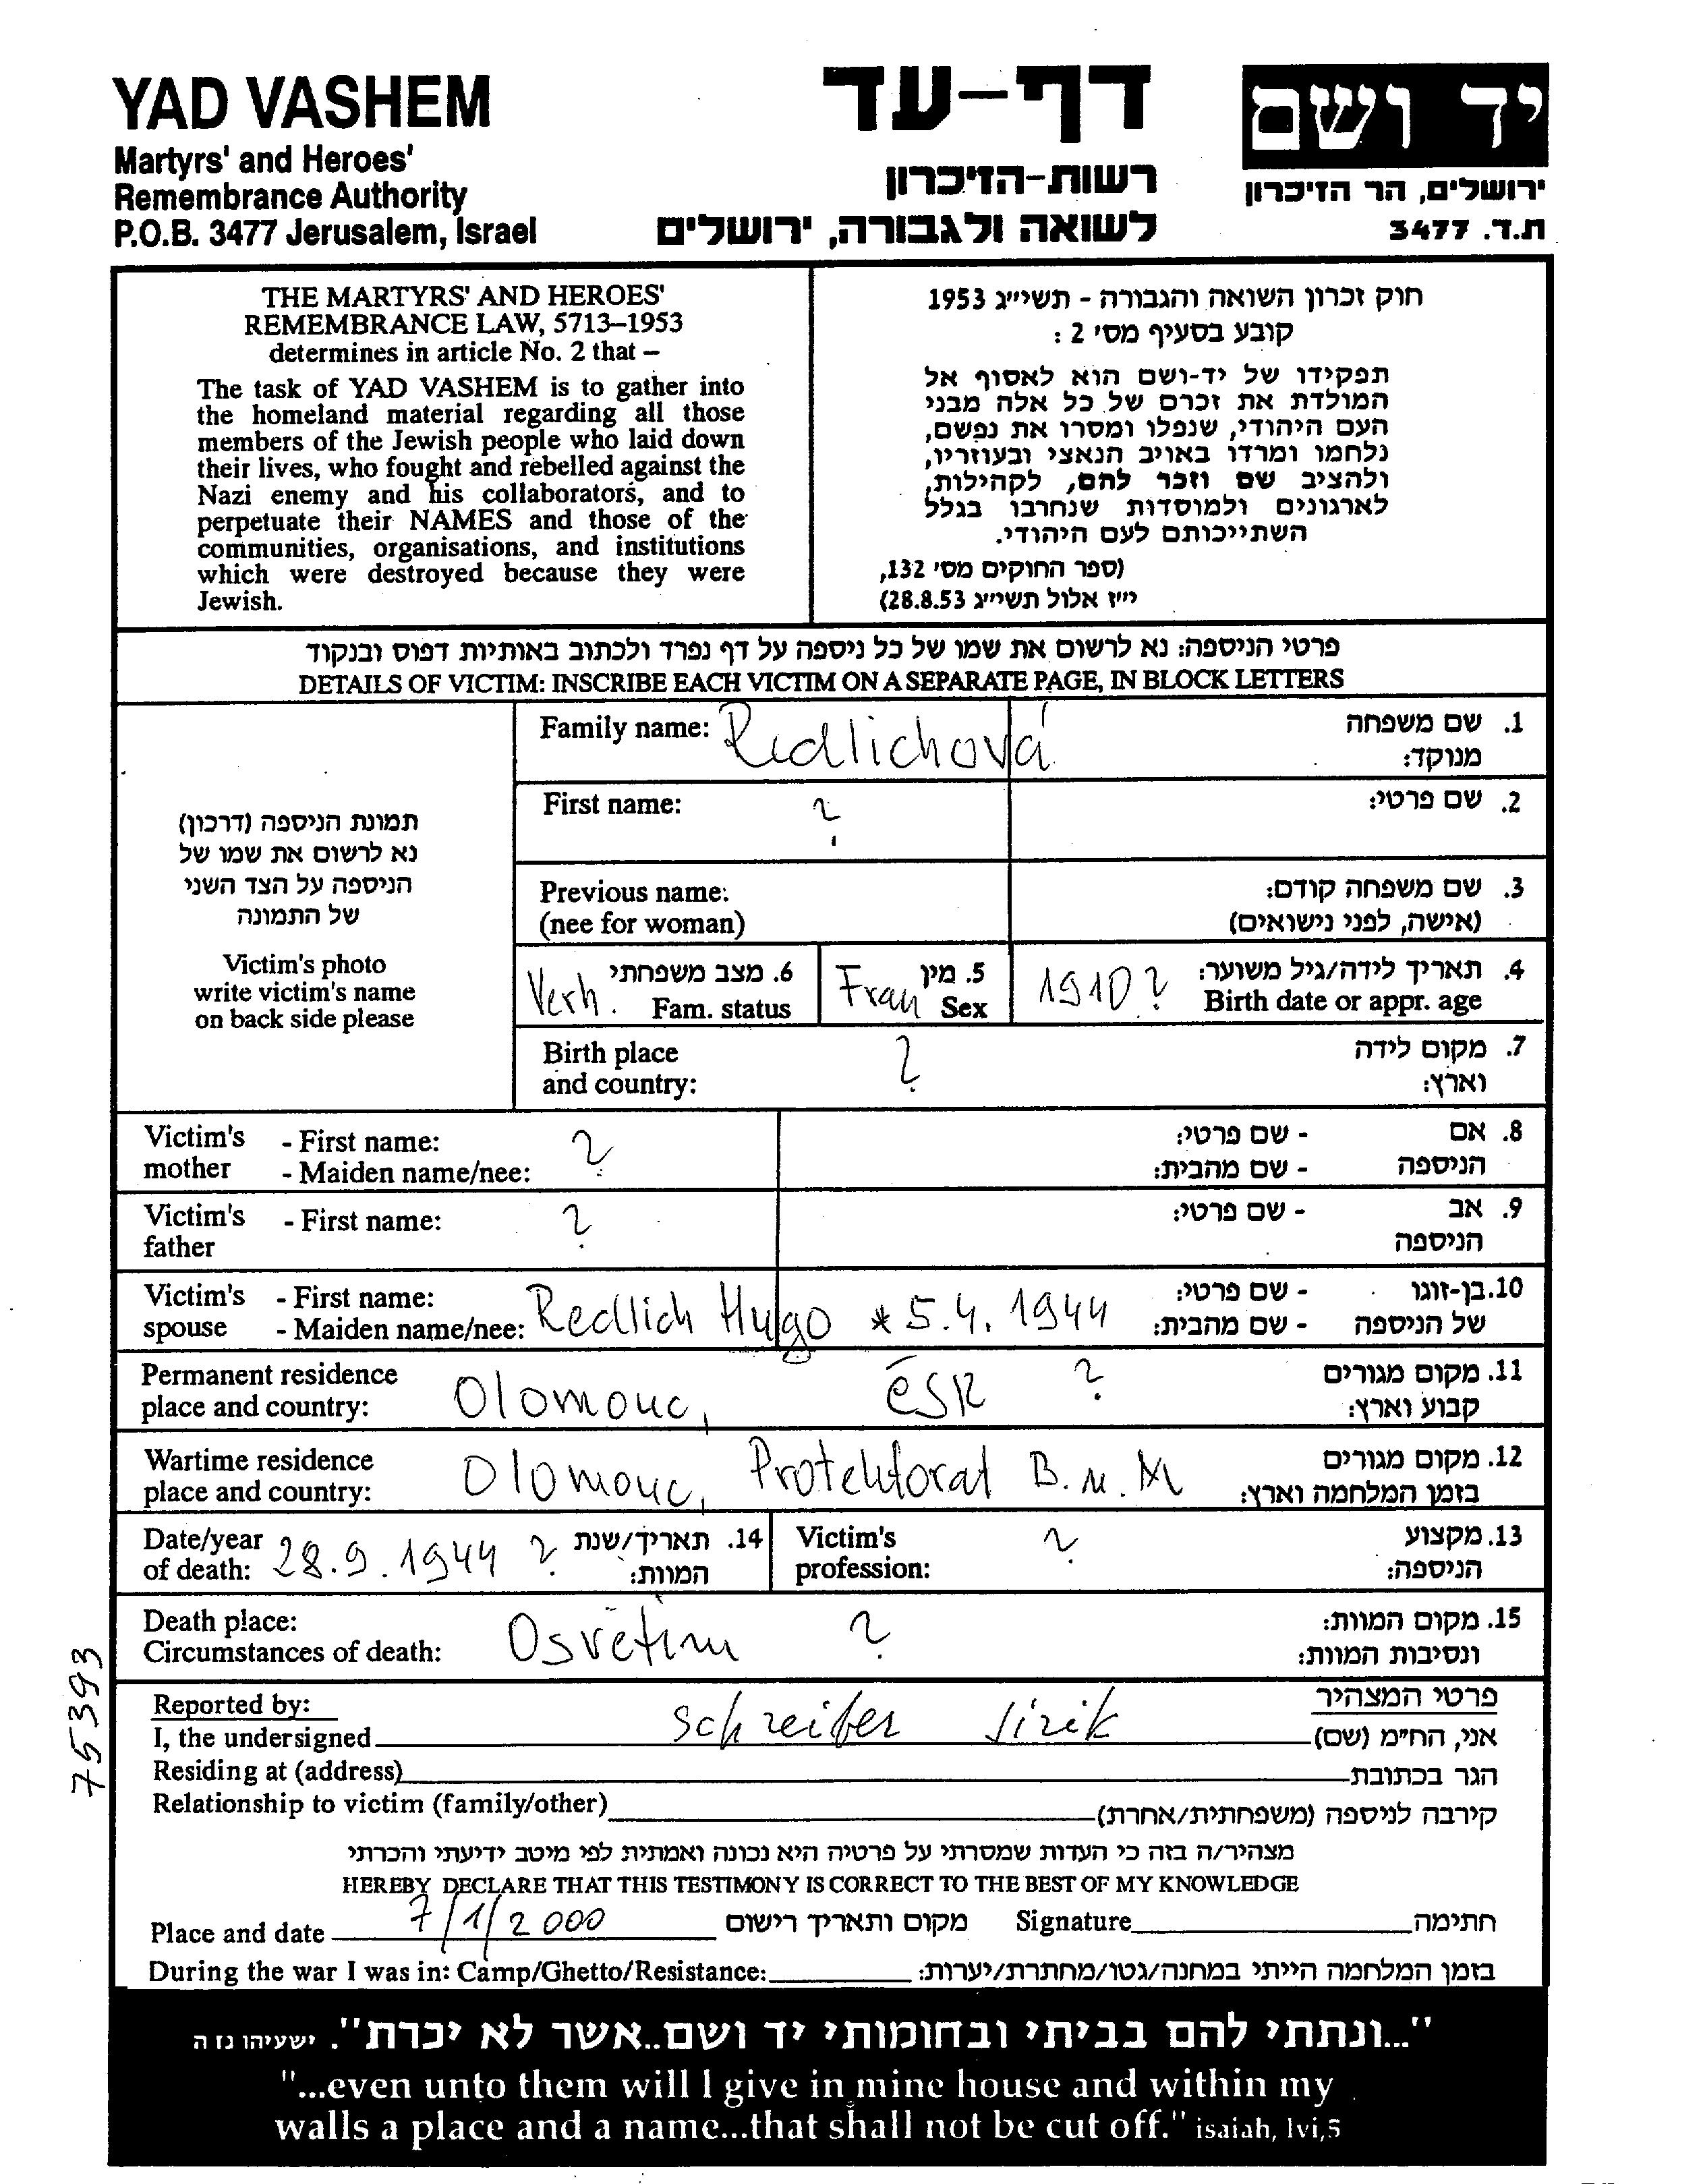 YAD VASHEM
Martyrs' and Heroes'
Remembrance Authority
P.O.B. 3477 Jerusalem, Israel
דף-עד
רשות-הזיכרון
לשואה ולגבורה, ירושלים
יד ושם
ירושלים, הר הזיכרון
ת.ד. 3477
THE MARTYRS' AND HEROES'
REMEMBRANCE LAW, 5713–1953
determines in article No. 2 that –
The task of YAD VASHEM is to gather into
the homeland material regarding all those
members of the Jewish people who laid down
their lives, who fought and rebelled against the
Nazi enemy and his collaborators, and to
perpetuate their NAMES and those of the
communities, organisations, and institutions
which were destroyed because they were
Jewish.
חוק זכרון השואה והגבורה - תשי״ג 1953
קובע בסעיף מס׳ 2 :
תפקידו של יד-ושם הוא לאסוף אל
המולדת את זכרם של כל אלה מבני
העם היהודי, שנפלו ומסרו את נפשם,
נלחמו ומרדו באויב הנאצי ובעוזריו,
ולהציב שם וזכר להם, לקהילות,
לארגונים ולמוסדות שנחרבו בגלל
השתייכותם לעם היהודי.
(ספר החוקים מס׳ 132,
י״ז אלול תשי״ג 28.8.53)
פרטי הניספה: נא לרשום את שמו של כל ניספה על דף נפרד ולכתוב באותיות דפוס ובנקוד
DETAILS OF VICTIM: INSCRIBE EACH VICTIM ON A SEPARATE PAGE, IN BLOCK LETTERS
תמונת הניספה (דרכון)
נא לרשום את שמו של
הניספה על הצד השני
של התמונה
Victim's photo
write victim's name
on back side please
Family name: Redlichová 1. שם משפחה
מנוקד:
First name: ? 2. שם פרטי:
Previous name: 3. שם משפחה קודם:
(nee for woman) (אישה, לפני נישואים)
Verh. 6. מצב משפחתי Fran 5. מין 1910? 4. תאריך לידה/גיל משוער:
Fam. status Sex Birth date or appr. age
Birth place ? 7. מקום לידה
and country: וארץ:
Victim's - First name: ? - שם פרטי: 8. אם
mother - Maiden name/nee: - שם מהבית: הניספה
Victim's - First name: ? - שם פרטי: 9. אב
father הניספה
Victim's - First name: Redlich Hugo * 5.4.1944 - שם פרטי: 10. בן-זוגו
spouse - Maiden name/nee: - שם מהבית: של הניספה
Permanent residence Olomouc, ČSR ? 11. מקום מגורים
place and country: קבוע וארץ:
Wartime residence Olomouc, Protektorat B. u. M 12. מקום מגורים
place and country: בזמן המלחמה וארץ:
Date/year 28.9.1944 ? 14. תאריך/שנת Victim's ? 13. מקצוע
of death: המוות: profession: הניספה:
Death place: Osvětim ? 15. מקום המוות:
Circumstances of death: ונסיבות המוות:
Reported by: פרטי המצהיר
I, the undersigned Schreiber Jiřík אני, הח״מ (שם)
Residing at (address) הגר בכתובת
Relationship to victim (family/other) קירבה לניספה (משפחתית/אחרת)
מצהיר/ה בזה כי העדות שמסרתי על פרטיה היא נכונה ואמתית לפי מיטב ידיעתי והכרתי
HEREBY DECLARE THAT THIS TESTIMONY IS CORRECT TO THE BEST OF MY KNOWLEDGE
Place and date 7/1/2000 מקום ותאריך רישום Signature חתימה
During the war I was in: Camp/Ghetto/Resistance: בזמן המלחמה הייתי במחנה/גטו/מחתרת/יערות:
75393
"...ונתתי להם בביתי ובחומותי יד ושם..אשר לא יכרת". ישעיהו נז ה
"...even unto them will I give in mine house and within my
walls a place and a name...that shall not be cut off." isaiah, lvi,5